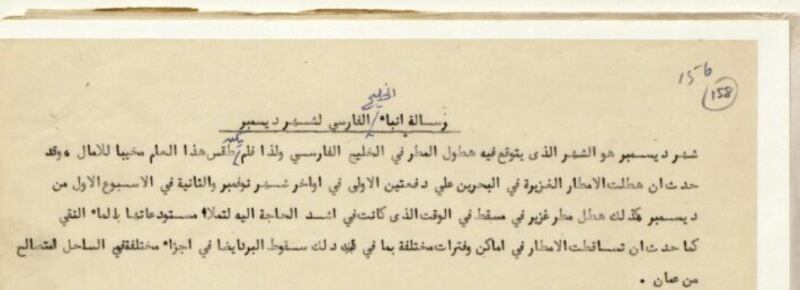 156
158
الخليج
رسالة انباء / الفارسي لشهر ديسمبر
شهر ديسمبر هو الشهر الذى يتوقع فيه هطول المطر في الخليج الفارسي ولذا فلم يكن طقس هذا العام مخيبا للامال ، وقد
حدث ان هطلت الامطار الغزيرة في البحرين علي دفعتين الاولى في اواخر شهر نوفمبر والثانية في الاسبوع الاول من
ديسمبر كذلك هطل مطر غزير في مسقط في الوقت الذى كانت في اشد الحاجة اليه لتملاء مستودعاتها بالماء النقي
كما حدث ان تساقطت الامطار في اماكن وفترات مختلفة بما في ذلك سقوط البرد ايضا في اجزاء مختلفة في الساحل المتصالح
من عمان .